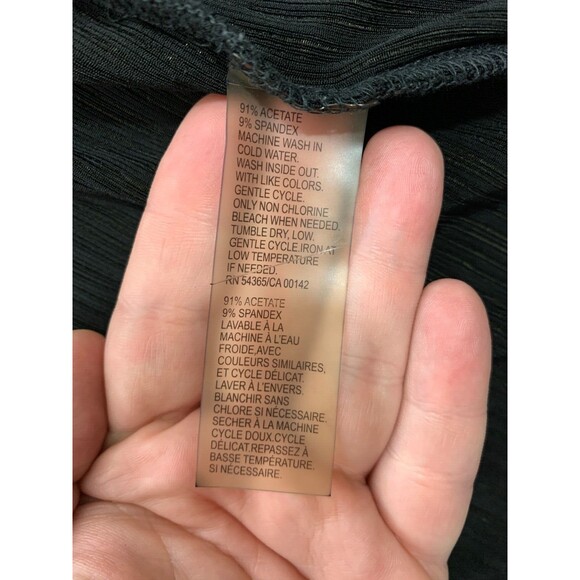 91% ACETATE
9% SPANDEX
MACHINE WASH IN
COLD WATER.
WASH INSIDE OUT.
WITH LIKE COLORS.
GENTLE CYCLE.
ONLY NON CHLORINE
BLEACH WHEN NEEDED.
TUMBLE DRY, LOW.
GENTLE CYCLE.IRON AT
LOW TEMPERATURE
IF NEEDED.
RN 54365/CA 00142
91% ACETATE
9% SPANDEX
LAVABLE À LA
MACHINE À L'EAU
FROIDE,AVEC
COULEURS SIMILAIRES,
ET CYCLE DÉLICAT.
LAVER À L'ENVERS.
BLANCHIR SANS
CHLORE SI NÉCESSAIRE.
SECHER À LA MACHINE
CYCLE DOUX.CYCLE
DÉLICAT.REPASSEZ À
BASSE TEMPÉRATURE.
SI NÉCESSAIRE.